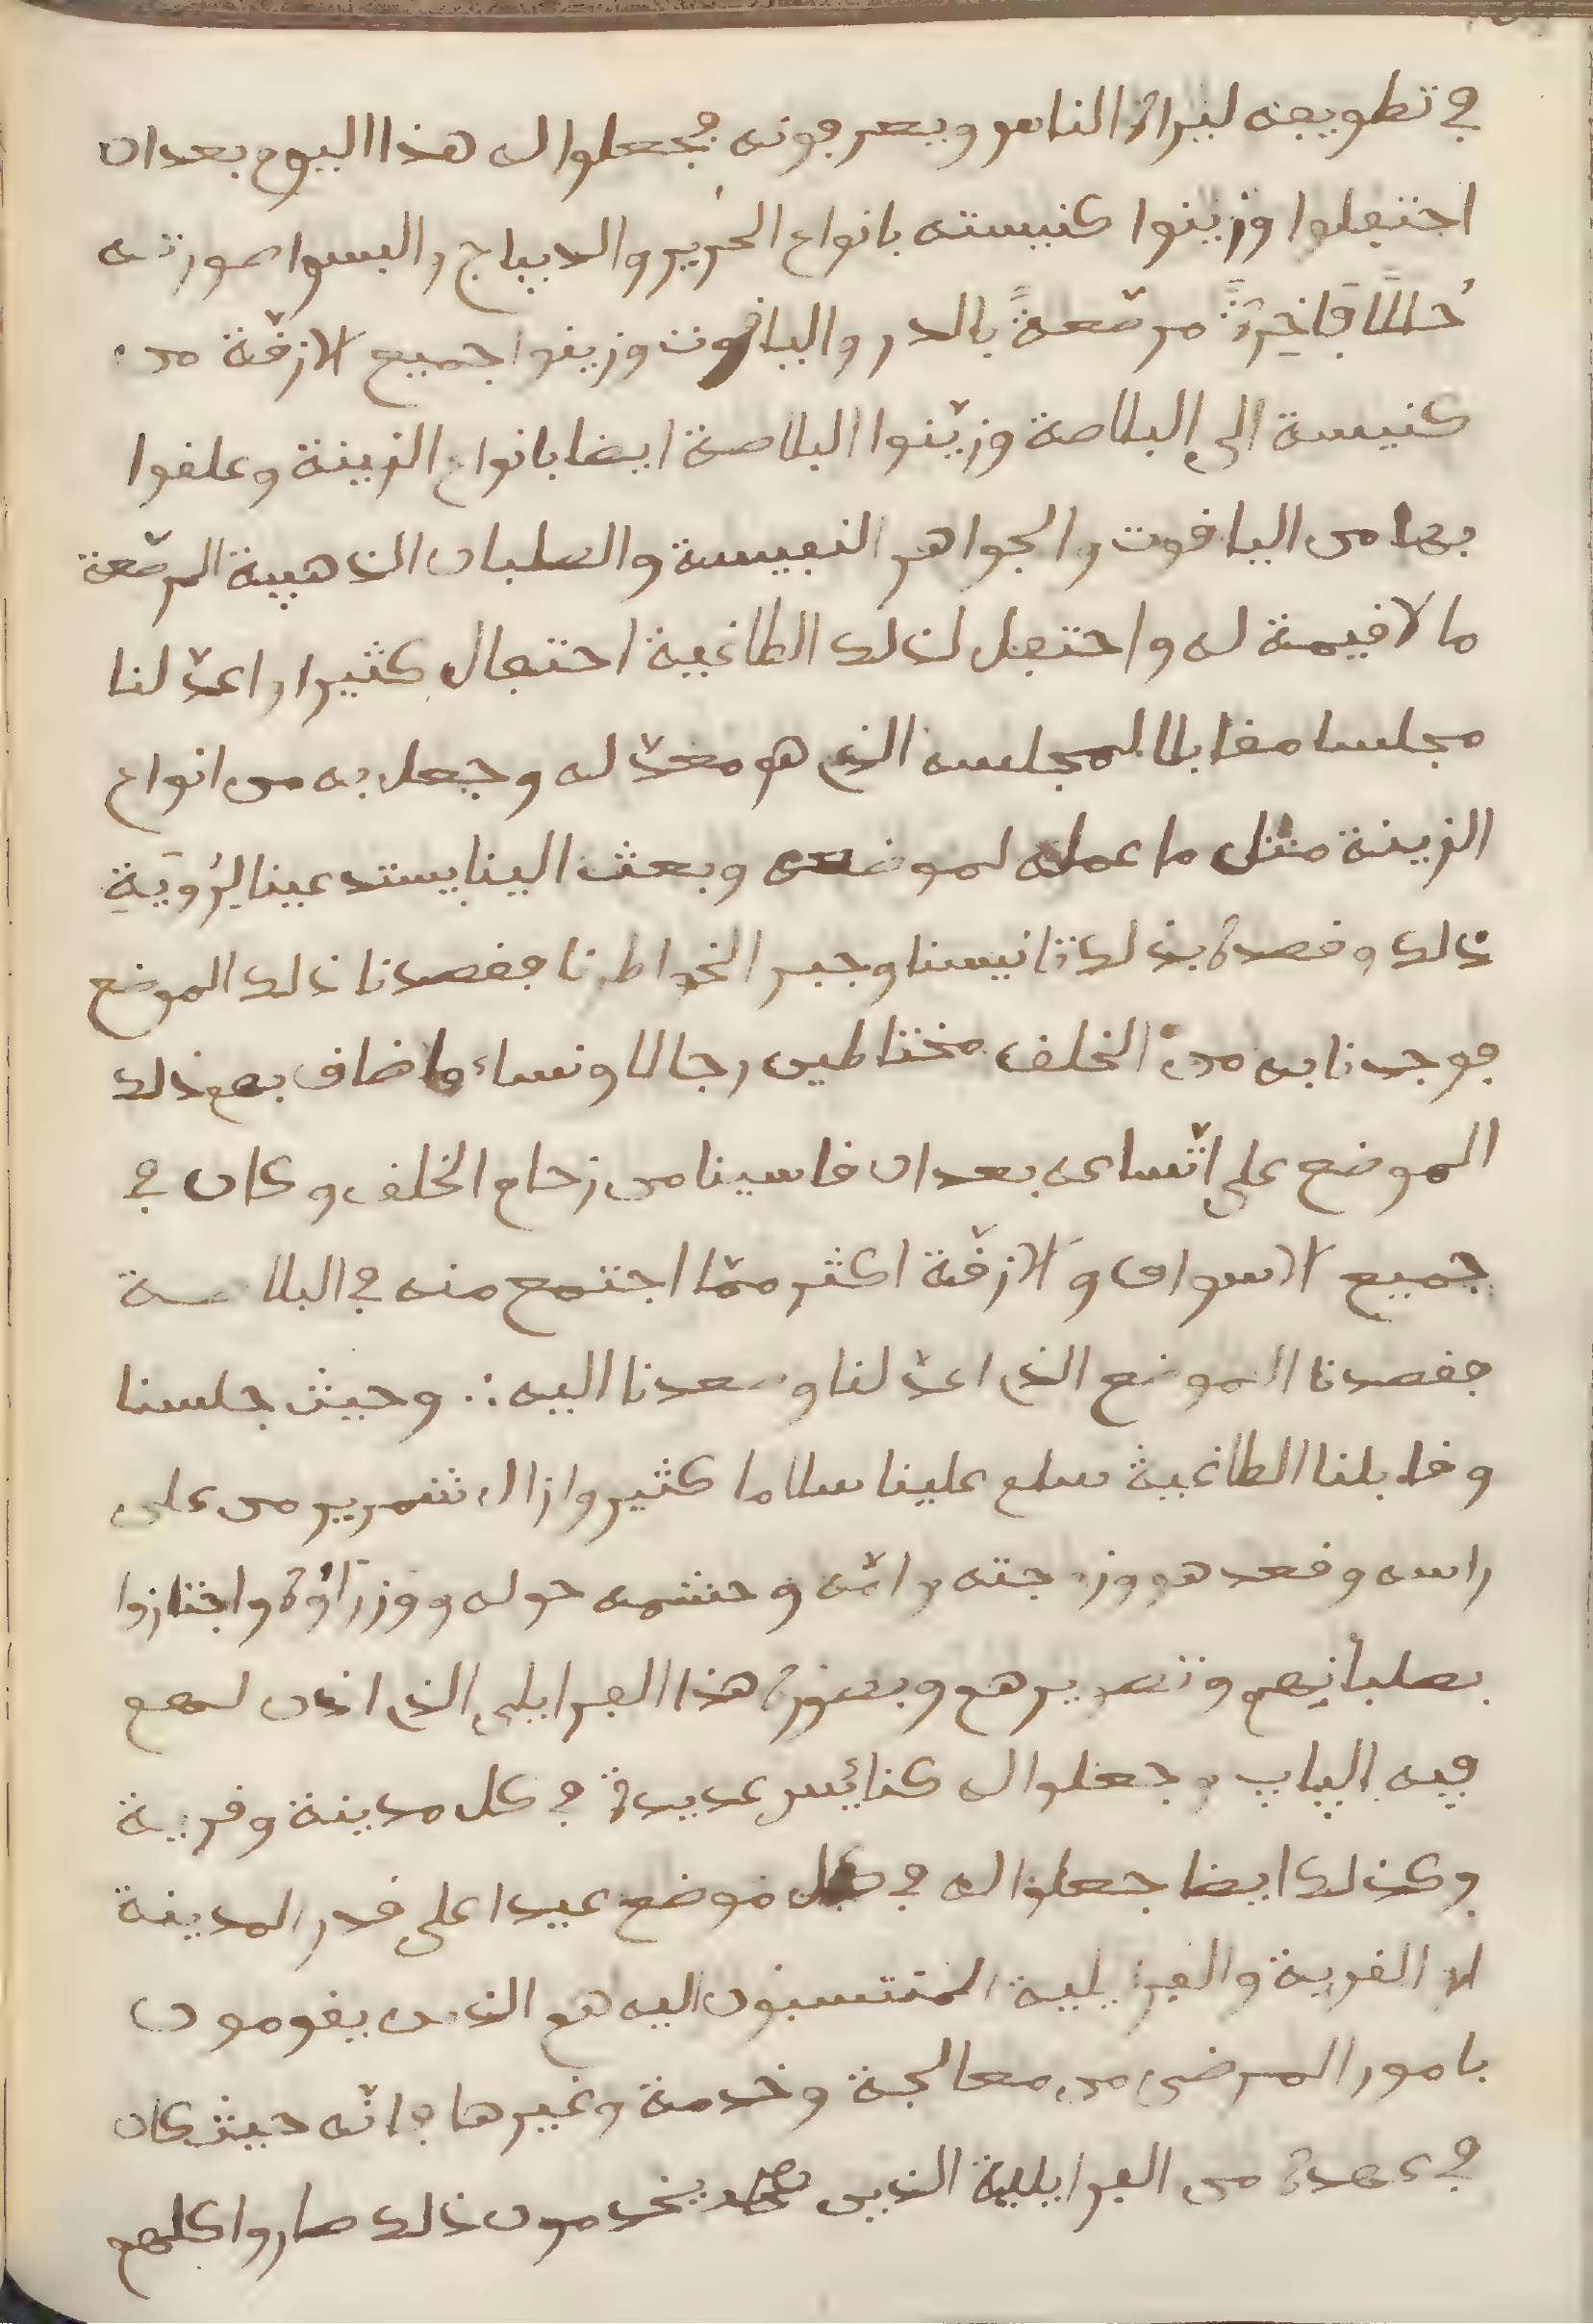 في تطويفه ليراه الناس ويعرفونه فجعلوا له هذا اليوم بعد ان
احتفلوا وزينوا كنيسته بانواع الحرير والديباج والبسوا صورته
حُللًا فاخِرةً مرصّعةً بالدر والياقوت وزينوا جميع الازقّة من
كنيسة الى البلاصة وزيّنوا البلاصة ايضا بانواع الزينة وعلقوا
بها من الياقوت والجواهر النفيسة والصلبان الذهبية المرصّعة
ما لا قيمة له واحتفل لذلك الطاغية احتفال كثيرا واعدّ لنا
مجلسا مقابلا لمجلسه الذي هو معدّ له وجعل به من انواع
الزينة مثل ما عمله لموضعه وبعث الينا يستدعينا لرُؤيَةِ
ذلك وقصده بذلك تانيسنا وجبر الخواطرنا فقصدنا ذلك الموضع
فوجدنا به من الخلق مختاطين رجالا ونساء ما ضاف بهم ذلك
الموضع على اتّساعه بعد ان قاسينا من زحام الخلق وكان في
جميع الاسواق والازقّة اكثر ممّا اجتمع منه في البلاصة
فقصدنا الموضع الذي اعدّ لنا وصعدنا اليه ∴ وحيث جلسنا
وقابلنا الطاغية سلم علينا سلاما كثير وازال شمرير من على
راسه وقعد هو وزوجته وامّه وحشمه حوله ووزرآؤه واجتازوا
بصلبانِهم وتصويرهم وبصورة هذا الفرايلي الذي اذن لهم
فيه الپاپ وجعلوا له كنائس عديدة في كل مدينة وقرية
وكذلك ايضا جعلوا له في كل موضع عيدا على قدر المدينة
او القرية والفرايلية المنتسبون اليه هم الذين يقومون
بامور المرضى من معالجة وخدمة وغيرها وانّه حيث كان
في عهده من الفرايلية الذين يخدمون ذلك صاروا كلهم